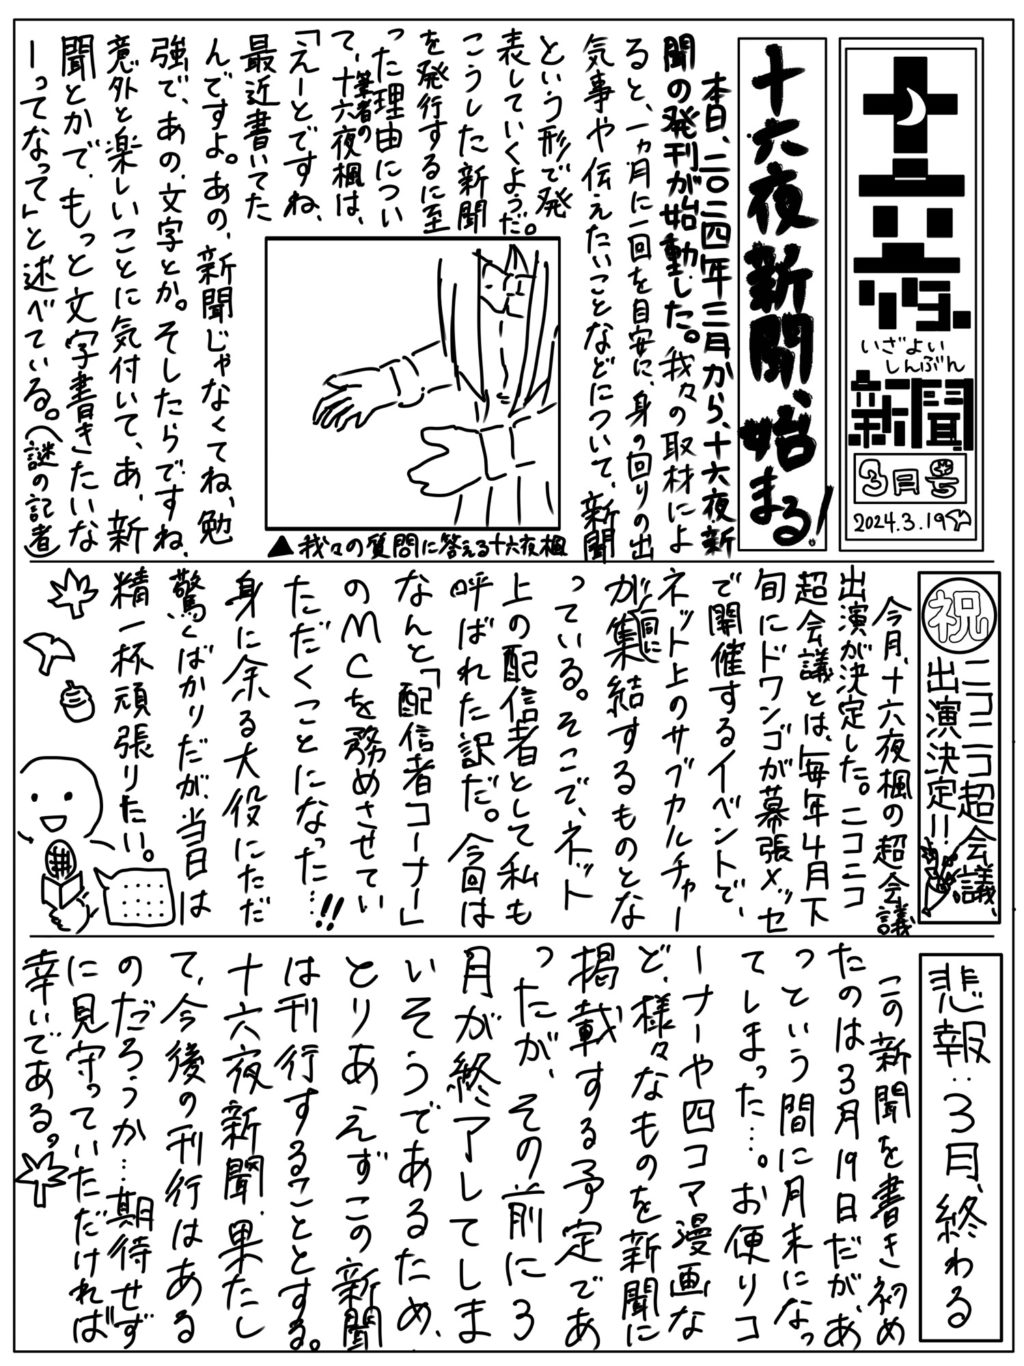 十六夜
いざよい
しんぶん
新聞
3月号
2024.3.19
十六夜新聞、始まる！
本日、二〇二四年三月から、十六夜新
聞の発刊が始動した。我々の取材によ
ると、一ヵ月に一回を目安に、身の回りの出
気事や伝えたいことなどについて、新聞
という形で発
表していくようだ。
こうした新聞
を発行するに至
った理由につい
て、筆者の十六夜楓は、
「えーとですね、
最近書いてた
んですよ。あの、新聞じゃなくてね、勉
強で、あの、文字とか。そしたらですね、
意外と楽しいことに気付いて、あ、新
聞とかで、もっと文字書きたいな
ーってなって」と述べている。(謎の記者)
▲我々の質問に答える十六夜楓
祝 ニコニコ超会議、
出演決定!!
今月、十六夜楓の超会議
出演が決定した。ニコニコ
超会議とは、毎年4月下
旬にドワンゴが幕張メッセ
で開催するイベントで、
ネット上のサブカルチャー
が一同に集結するものとな
っている。そこで、ネット
上の配信者として私も
呼ばれた訳だ。今回は
なんと「配信者コーナー」
のMCを務めさせてい
ただくことになった…!!
身に余る大役にただ
驚くばかりだが、当日は
精一杯頑張りたい。
悲報…3月、終わる
この新聞を書き初め
たのは3月19日だが、あ
っという間に月末になっ
てしまった…。お便りコ
ーナーや四コマ漫画な
ど、様々なものを新聞に
掲載する予定であ
ったが、その前に3
月が終了してしま
いそうであるため、
とりあえずこの新聞
は刊行することとする。
十六夜新聞、果たし
て、今後の刊行はある
のだろうか…期待せず
に見守っていただければ
幸いである。